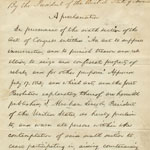 By the President of the United States of America
A Proclamation
In pursuance of the sixth section of the
Act of Congress entitled "An Act to suppress
insurrection, and to punish treason and
rebellion, to seize and confiscate property of
rebels, and for other purposes" Approved
July 17. 1862, and which Act, and the Joint
Resolution explanatory thereof, are herewith
published, I Abraham Lincoln, President of
the United States, do hereby proclaim
to, and warn all persons within the
contemplation of said sixth section to
cease participating in, aiding, countenancing